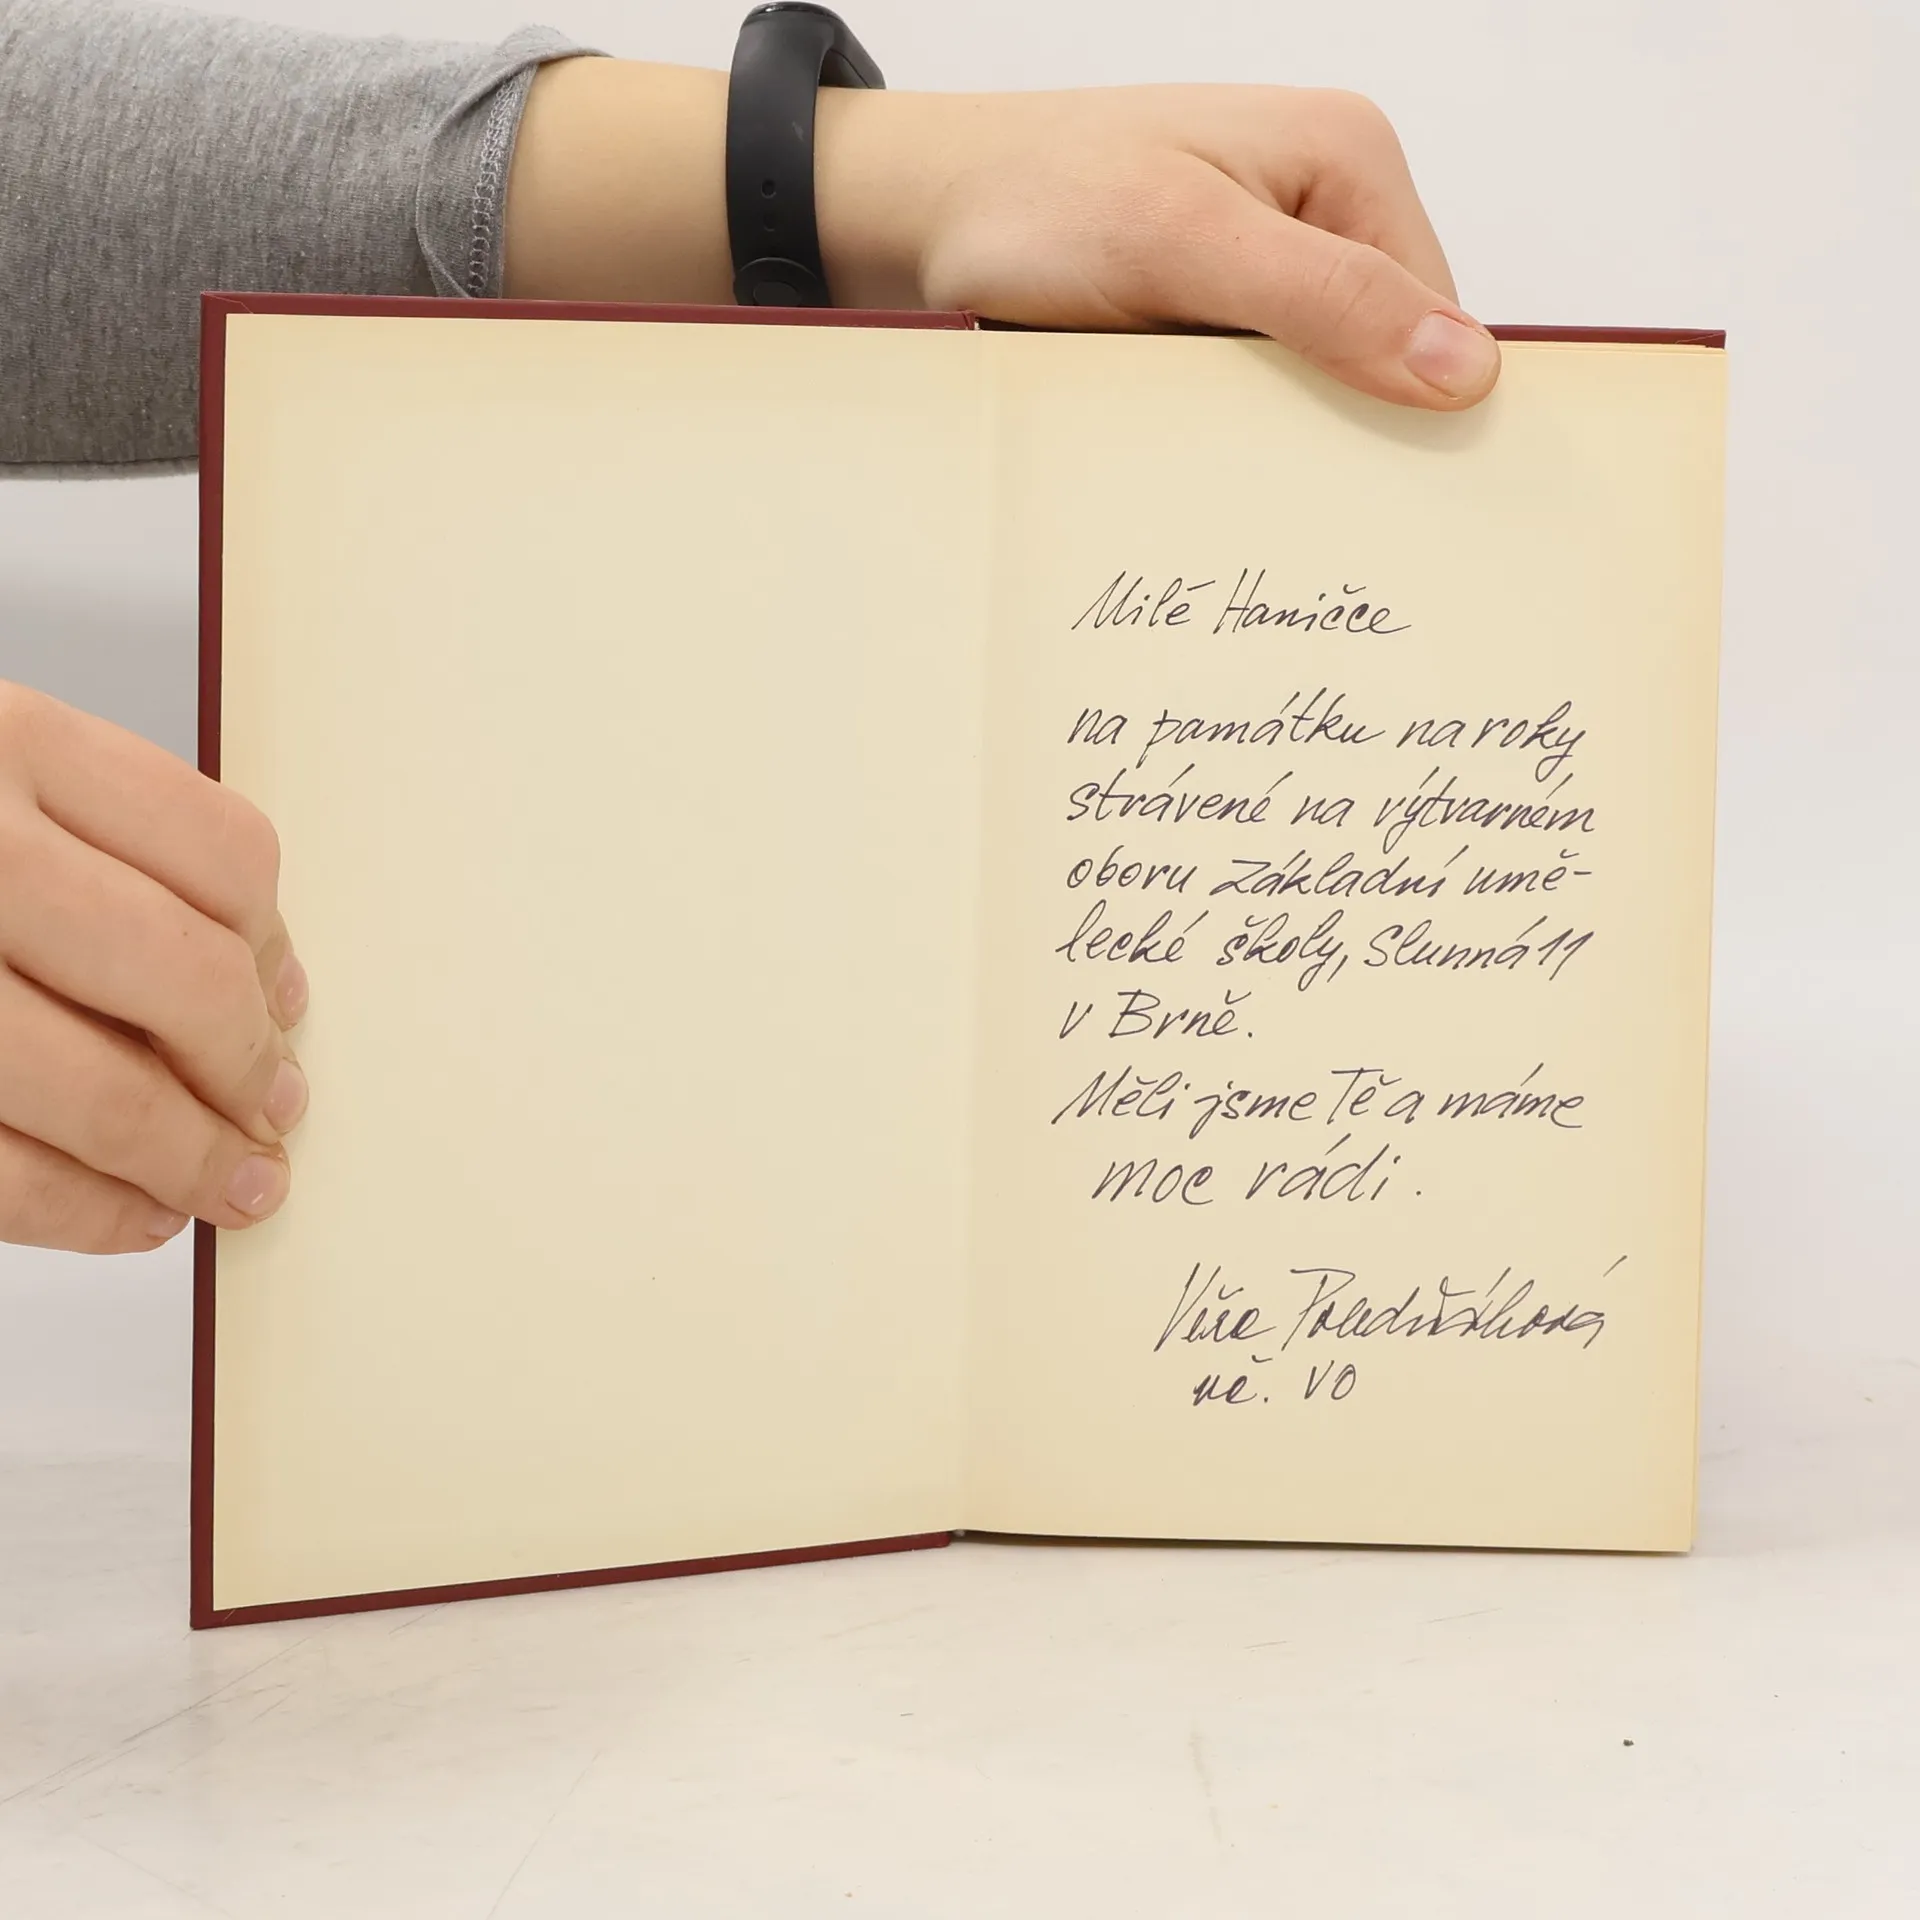 Milé Haničce
na památku na roky
strávené na výtvarném
oboru Základní umě-
lecké školy, Slunná 11
v Brně.
Měli jsme Tě a máme
moc rádi.
Věra
uč. VO